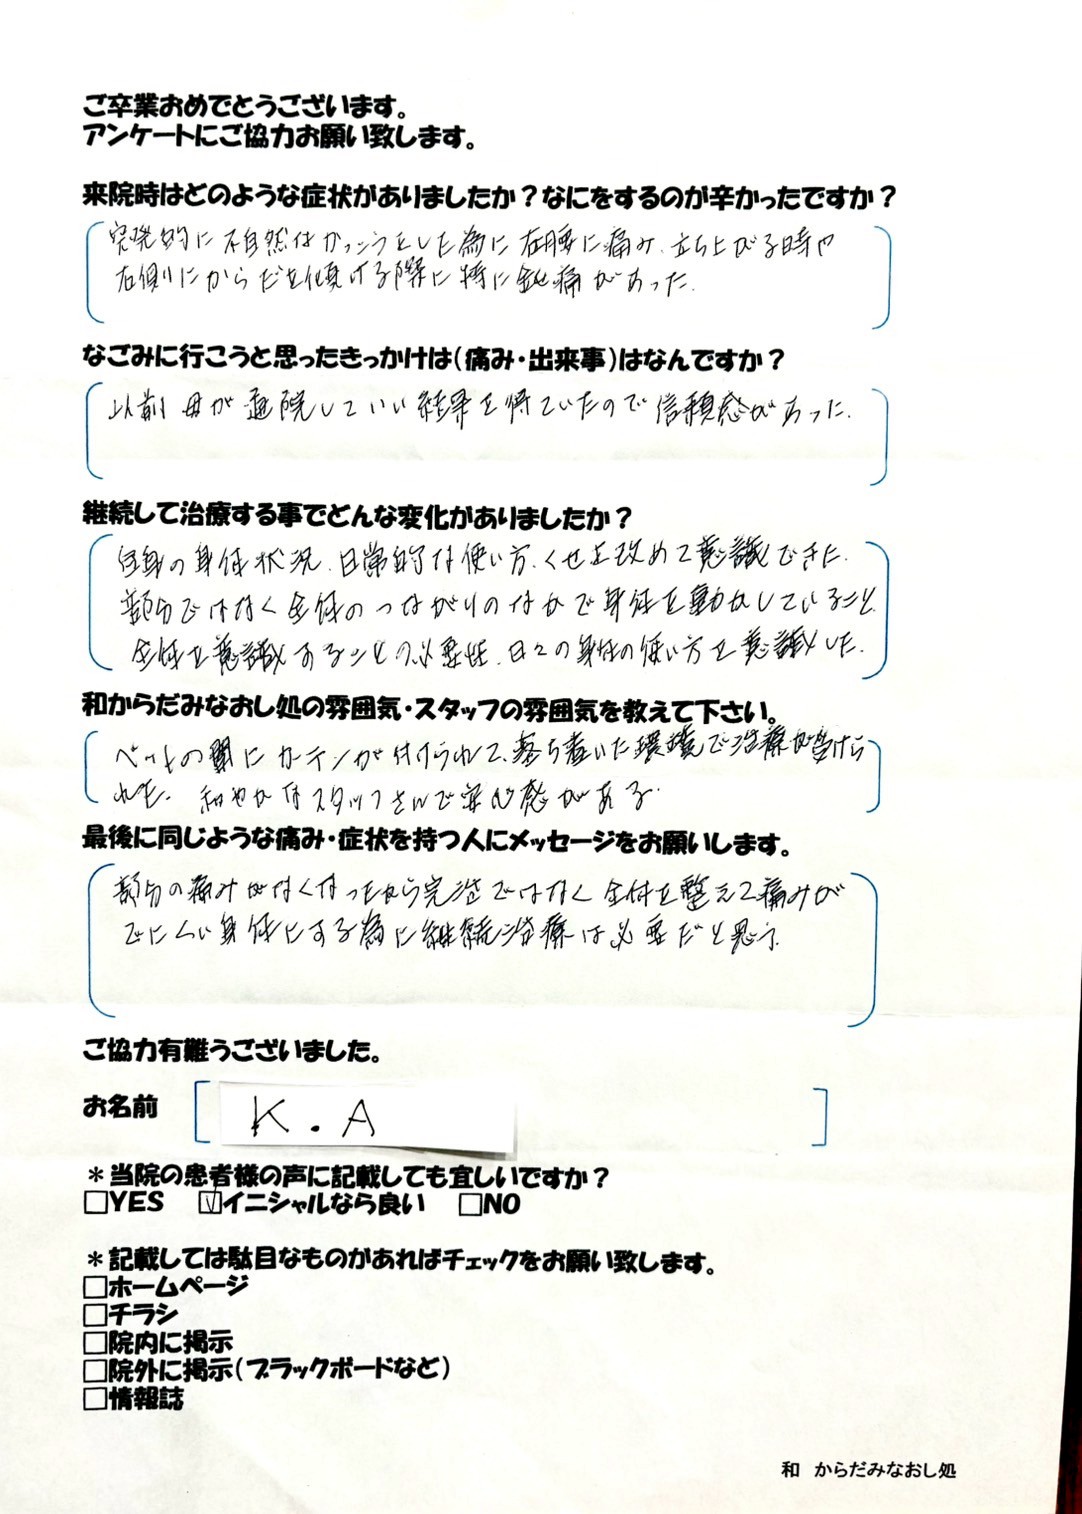 ご卒業おめでとうございます。
アンケートにご協力お願い致します。
来院時はどのような症状がありましたか？なにをするのが辛かったですか？
突発的に不自然なかっこうをした為に右腰に痛み、立ち上がる時や
右側にからだを傾ける際に特に鈍痛があった。
なごみに行こうと思ったきっかけは（痛み・出来事）はなんですか？
以前母が通院していい結果を得ていたので信頼感があった。
継続して治療する事でどんな変化がありましたか？
自身の身体状況、日常的な使い方、くせを改めて意識できた。
部分ではなく全体のつながりのなかで身体を動かしていること、
全体を意識することの必要性、日々の身体の使い方を意識した。
和からだみなおし処の雰囲気・スタッフの雰囲気を教えて下さい。
ベットの間にカーテンが付けられて、落ち着いた環境で治療が受けら
れた。和やかなスタッフさんで安心感がある。
最後に同じような痛み・症状を持つ人にメッセージをお願いします。
部分の痛みがなくなったから完治ではなく全体を整えて痛みが
でにくい身体にする為に継続治療は必要だと思う。
ご協力有難うございました。
お名前 K．A
＊当院の患者様の声に記載しても宜しいですか？
□YES ☑イニシャルなら良い □NO
＊記載しては駄目なものがあればチェックをお願い致します。
□ホームページ
□チラシ
□院内に掲示
□院外に掲示（ブラックボードなど）
□情報誌
和 からだみなおし処